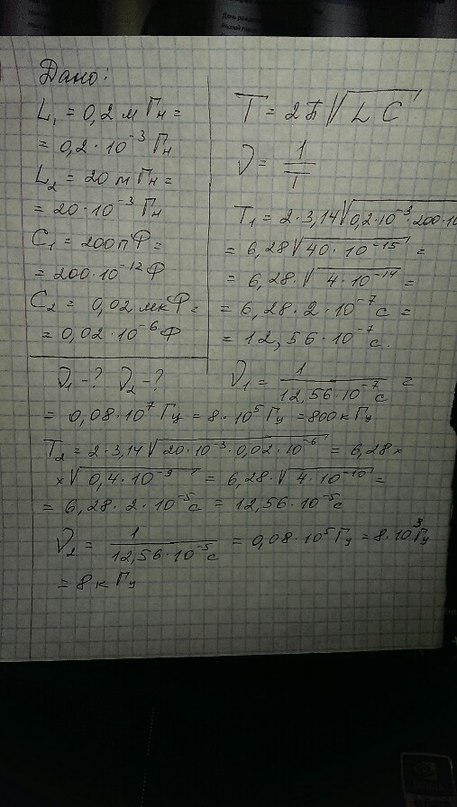 Дано:
L₁ = 0,2 м Гн =
= 0,2·10⁻³ Гн
L₂ = 20 м Гн =
= 20·10⁻³ Гн
C₁ = 200 пФ =
= 200·10⁻¹² Ф
C₂ = 0,02 мкФ =
= 0,02·10⁻⁶ Ф
ν₁ - ? ν₂ - ?
T = 2π√LC
ν = 1/T
T₁ = 2·3,14√0,2·10⁻³·200·10
= 6,28√40·10⁻¹⁵ =
= 6,28·√4·10⁻¹⁴ =
= 6,28·2·10⁻⁷ с =
= 12,56·10⁻⁷ с.
ν₁ = 1/12,56·10⁻⁷ с =
= 0,08·10⁷ Гц = 8·10⁵ Гц = 800 к Гц
T₂ = 2·3,14√20·10⁻³·0,02·10⁻⁶ = 6,28×
×√0,4·10⁻⁹ = 6,28·√4·10⁻¹⁰ =
= 6,28·2·10⁻⁵ с = 12,56·10⁻⁵ с
ν₂ = 1/12,56·10⁻⁵ с = 0,08·10⁵ Гц = 8·10³ Гц
= 8 к Гц